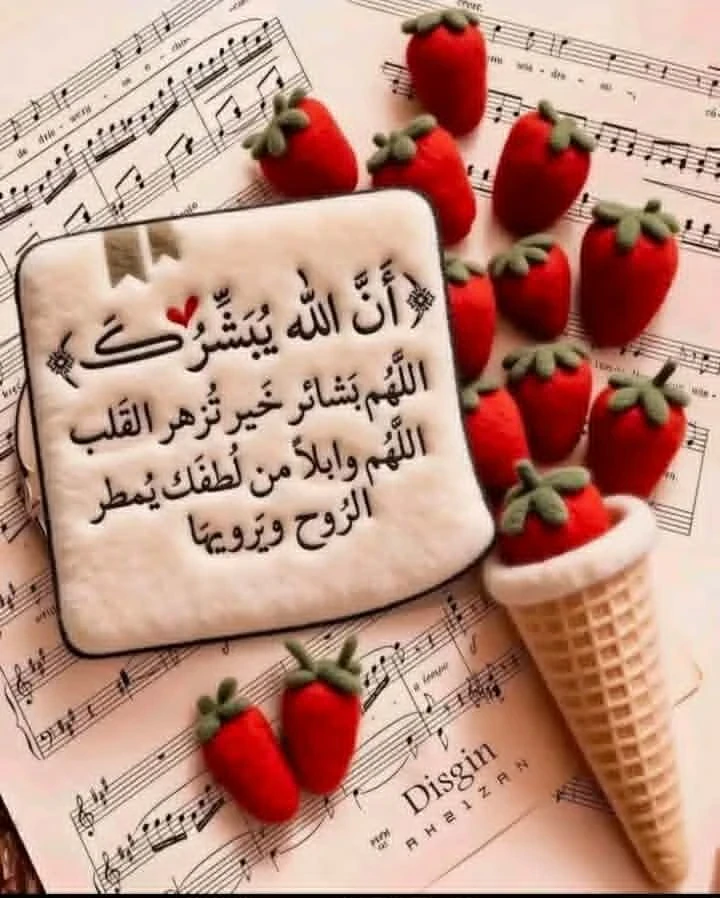 ﴿أَنَّ الله يُبَشِّرُكَ﴾
اللَّهُم بَشائر خَير تُزهر القَلب
اللَّهُم وابلاً من لُطفَك يُمطر
الرُوح ويَرويهَا
a tempo
Disgin